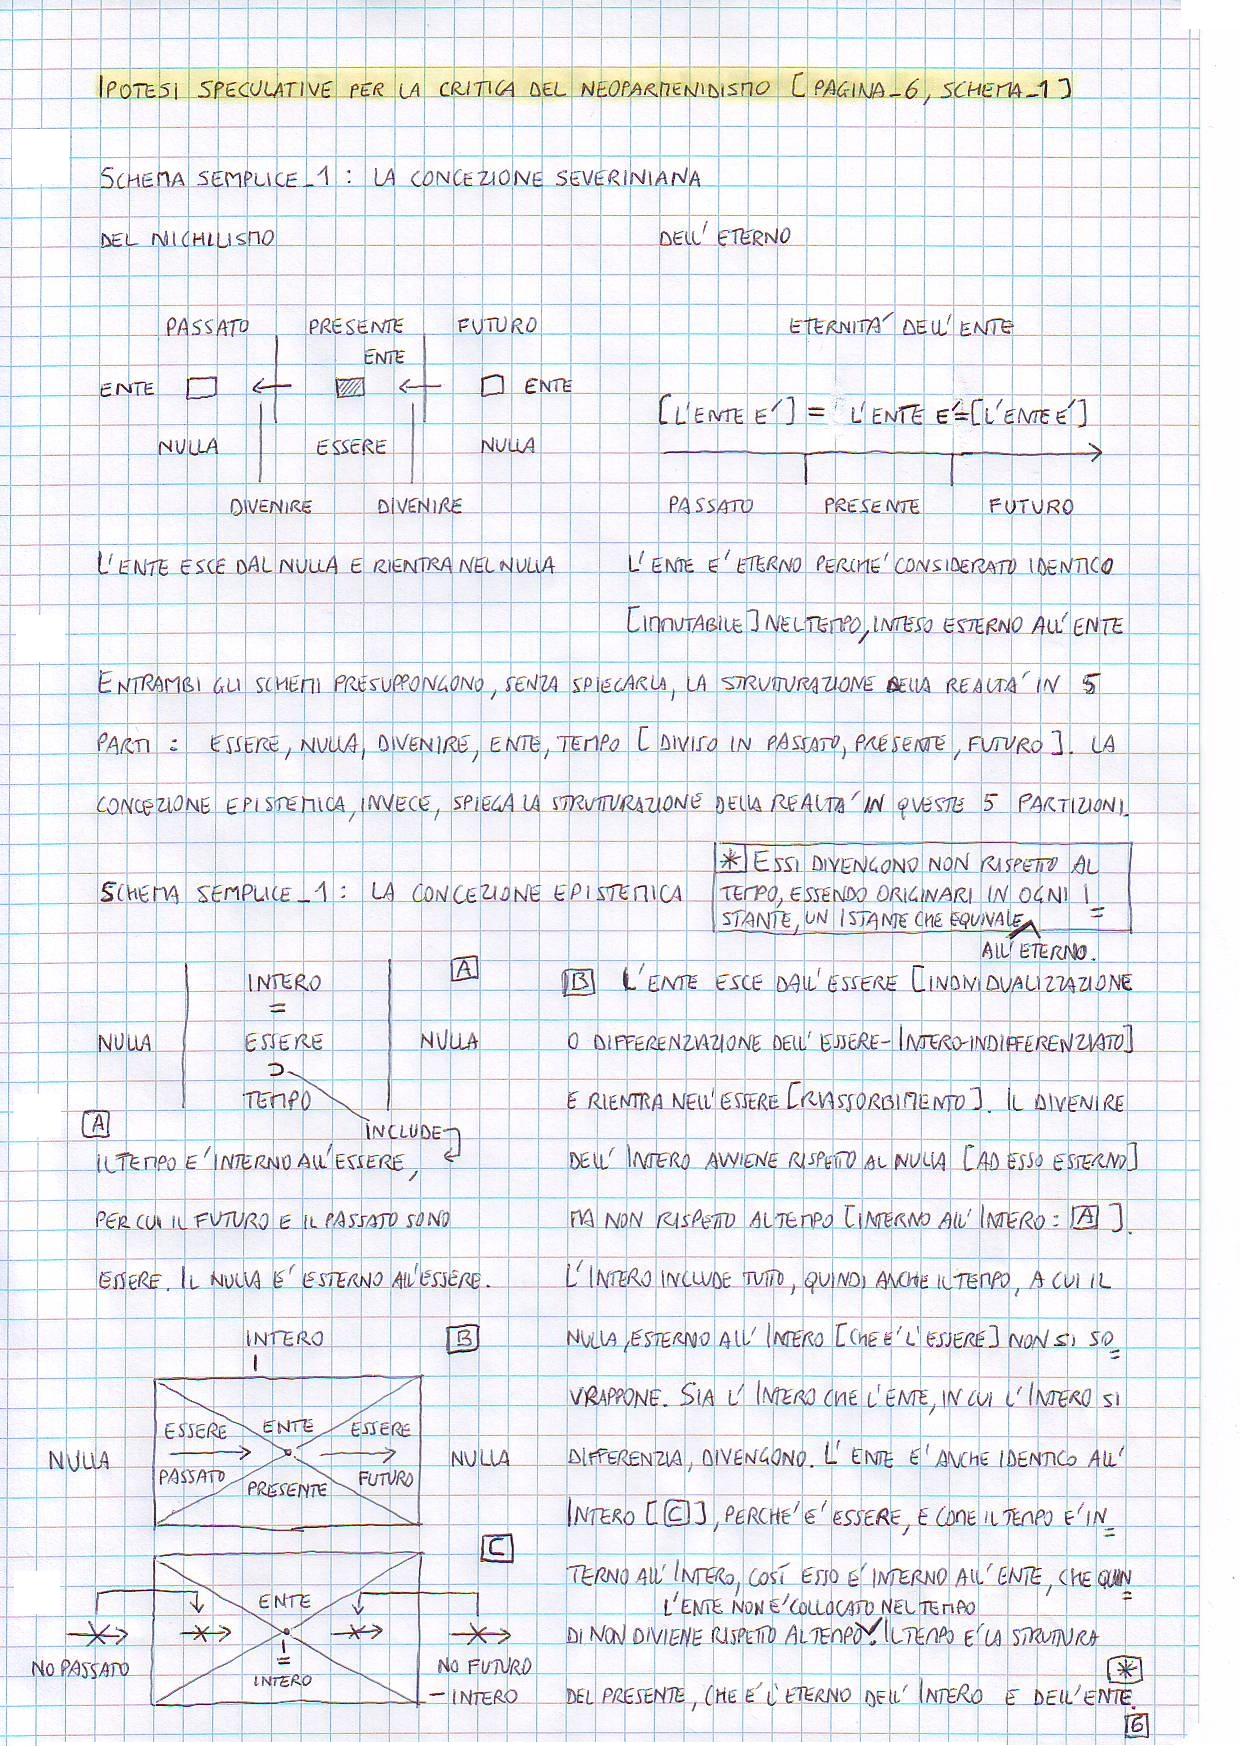 IPOTESI SPECULATIVE PER LA CRITICA DEL NEOPARMENIDISMO [PAGINA_6, SCHEMA_1]
SCHEMA SEMPLICE_1 : LA CONCEZIONE SEVERINIANA
DEL NICHILISMO
DELL'ETERNO
PASSATO PRESENTE FUTURO
ENTE
ENTE ENTE
NULLA ESSERE NULLA
DIVENIRE DIVENIRE
L'ENTE ESCE DAL NULLA E RIENTRA NEL NULLA
ETERNITA' DELL'ENTE
[L'ENTE E'] = L'ENTE E'=[L'ENTE E']
PASSATO PRESENTE FUTURO
L'ENTE E' ETERNO PERCHE' CONSIDERATO IDENTICO
[IMMUTABILE] NEL TEMPO, INTESO ESTERNO ALL'ENTE
ENTRAMBI GLI SCHEMI PRESUPPONGONO, SENZA SPIEGARLA, LA STRUTTURAZIONE DELLA REALTA' IN 5
PARTI : ESSERE, NULLA, DIVENIRE, ENTE, TEMPO [DIVISO IN PASSATO, PRESENTE, FUTURO]. LA
CONCEZIONE EPISTEMICA, INVECE, SPIEGA LA STRUTTURAZIONE DELLA REALTA' IN QUESTE 5 PARTIZIONI.
SCHEMA SEMPLICE_1 : LA CONCEZIONE EPISTEMICA
* ESSI DIVENGONO NON RISPETTO AL
TEMPO, ESSENDO ORIGINARI IN OGNI I=
STANTE, UN ISTANTE CHE EQUIVALE
ALL'ETERNO.
A
INTERO
=
NULLA ESSERE NULLA
⊃
TEMPO
INCLUDE
A
IL TEMPO E' INTERNO ALL'ESSERE,
PER CUI IL FUTURO E IL PASSATO SONO
ESSERE. IL NULLA E' ESTERNO ALL'ESSERE.
INTERO B
ESSERE ENTE ESSERE
NULLA NULLA
PASSATO PRESENTE FUTURO
C
ENTE
=
INTERO
NO PASSATO NO FUTURO
– INTERO
B L'ENTE ESCE DALL'ESSERE [INDIVIDUALIZZAZIONE
O DIFFERENZIAZIONE DELL'ESSERE-INTERO-INDIFFERENZIATO]
E RIENTRA NELL'ESSERE [RIASSORBIMENTO]. IL DIVENIRE
DELL'INTERO AVVIENE RISPETTO AL NULLA [AD ESSO ESTERNO]
MA NON RISPETTO AL TEMPO [INTERNO ALL'INTERO : A].
L'INTERO INCLUDE TUTTO, QUINDI ANCHE IL TEMPO, A CUI IL
NULLA, ESTERNO ALL'INTERO [CHE E' L'ESSERE] NON SI SO=
VRAPPONE. SIA L'INTERO CHE L'ENTE, IN CUI L'INTERO SI
DIFFERENZIA, DIVENGONO. L'ENTE E' ANCHE IDENTICO ALL'
INTERO [C], PERCHE' E' ESSERE, E COME IL TEMPO E' IN=
TERNO ALL'INTERO, COSÍ ESSO E' INTERNO ALL'ENTE, CHE QUIN=
L'ENTE NON E' COLLOCATO NEL TEMPO
DI NON DIVIENE RISPETTO AL TEMPO. IL TEMPO E' LA STRUTTURA
DEL PRESENTE, CHE E' L'ETERNO DELL'INTERO E DELL'ENTE. *
6